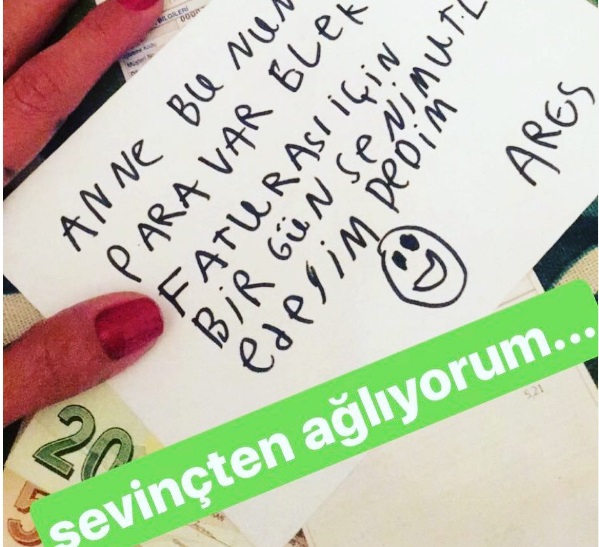 BİLGİLERİ
ANNE BU NUN
PARA VAR ELEK
FATURASI İÇİN
BİR GÜN SENİMUTL
edeyim DEDİM
ARES
5,21
20
5
sevinçten ağlıyorum...